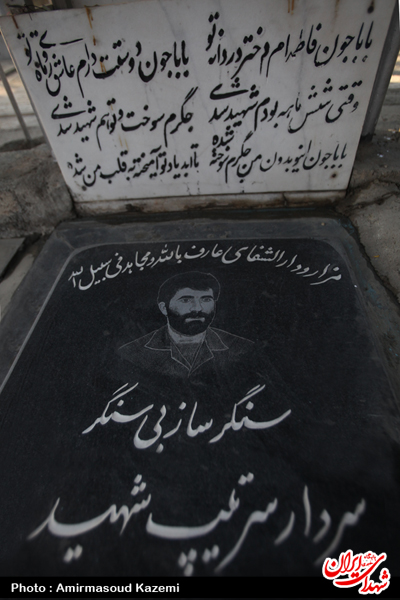 باباجون فاطمه ام دختر دردانه تو
باباجون دوستت دارم عاشق
وقتی شش ماهه بودم شهید شدی
جگرم سوخت و توام شهید شدی
باباجون بدون من جگرم سوخته شده
تا ابد یاد تو آمیخته به قلب من شد
مزار و دارالشفای عارف بالله و مجاهد فی سبیل الله
سنگر ساز بی سنگر
سردار سرتیپ شهید
شهدای ایران
Photo : Amirmasoud Kazemi